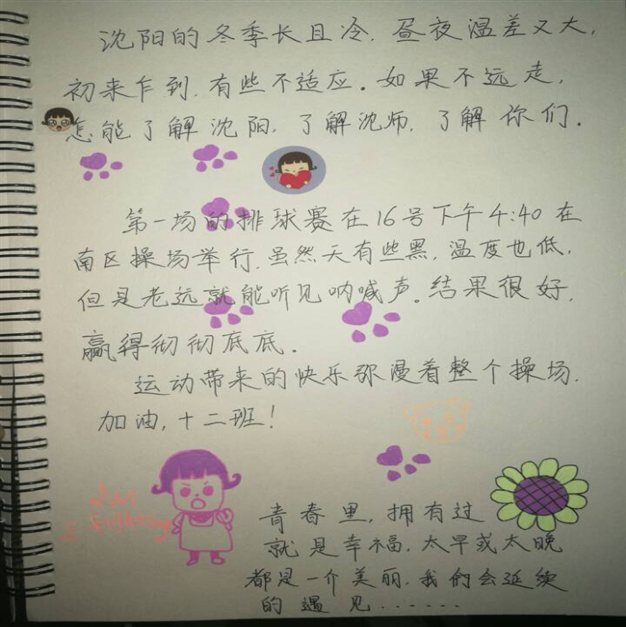 沈阳的冬季长且冷.昼夜温差又大,
初来乍到.有些不适应。如果不远走,
怎能了解沈阳.了解沈师.了解你们.
第一场的排球赛在16号下午4:40在
南区操场举行.虽然天有些黑,温度也低,
但是老远就能听见呐喊声.结果很好,
赢得彻彻底底.
运动带来的快乐弥漫着整个操场.
加油,十二班!
青春里,拥有过
就是幸福.太早或太晚
都是一介美丽.我们会延续
的遇见......